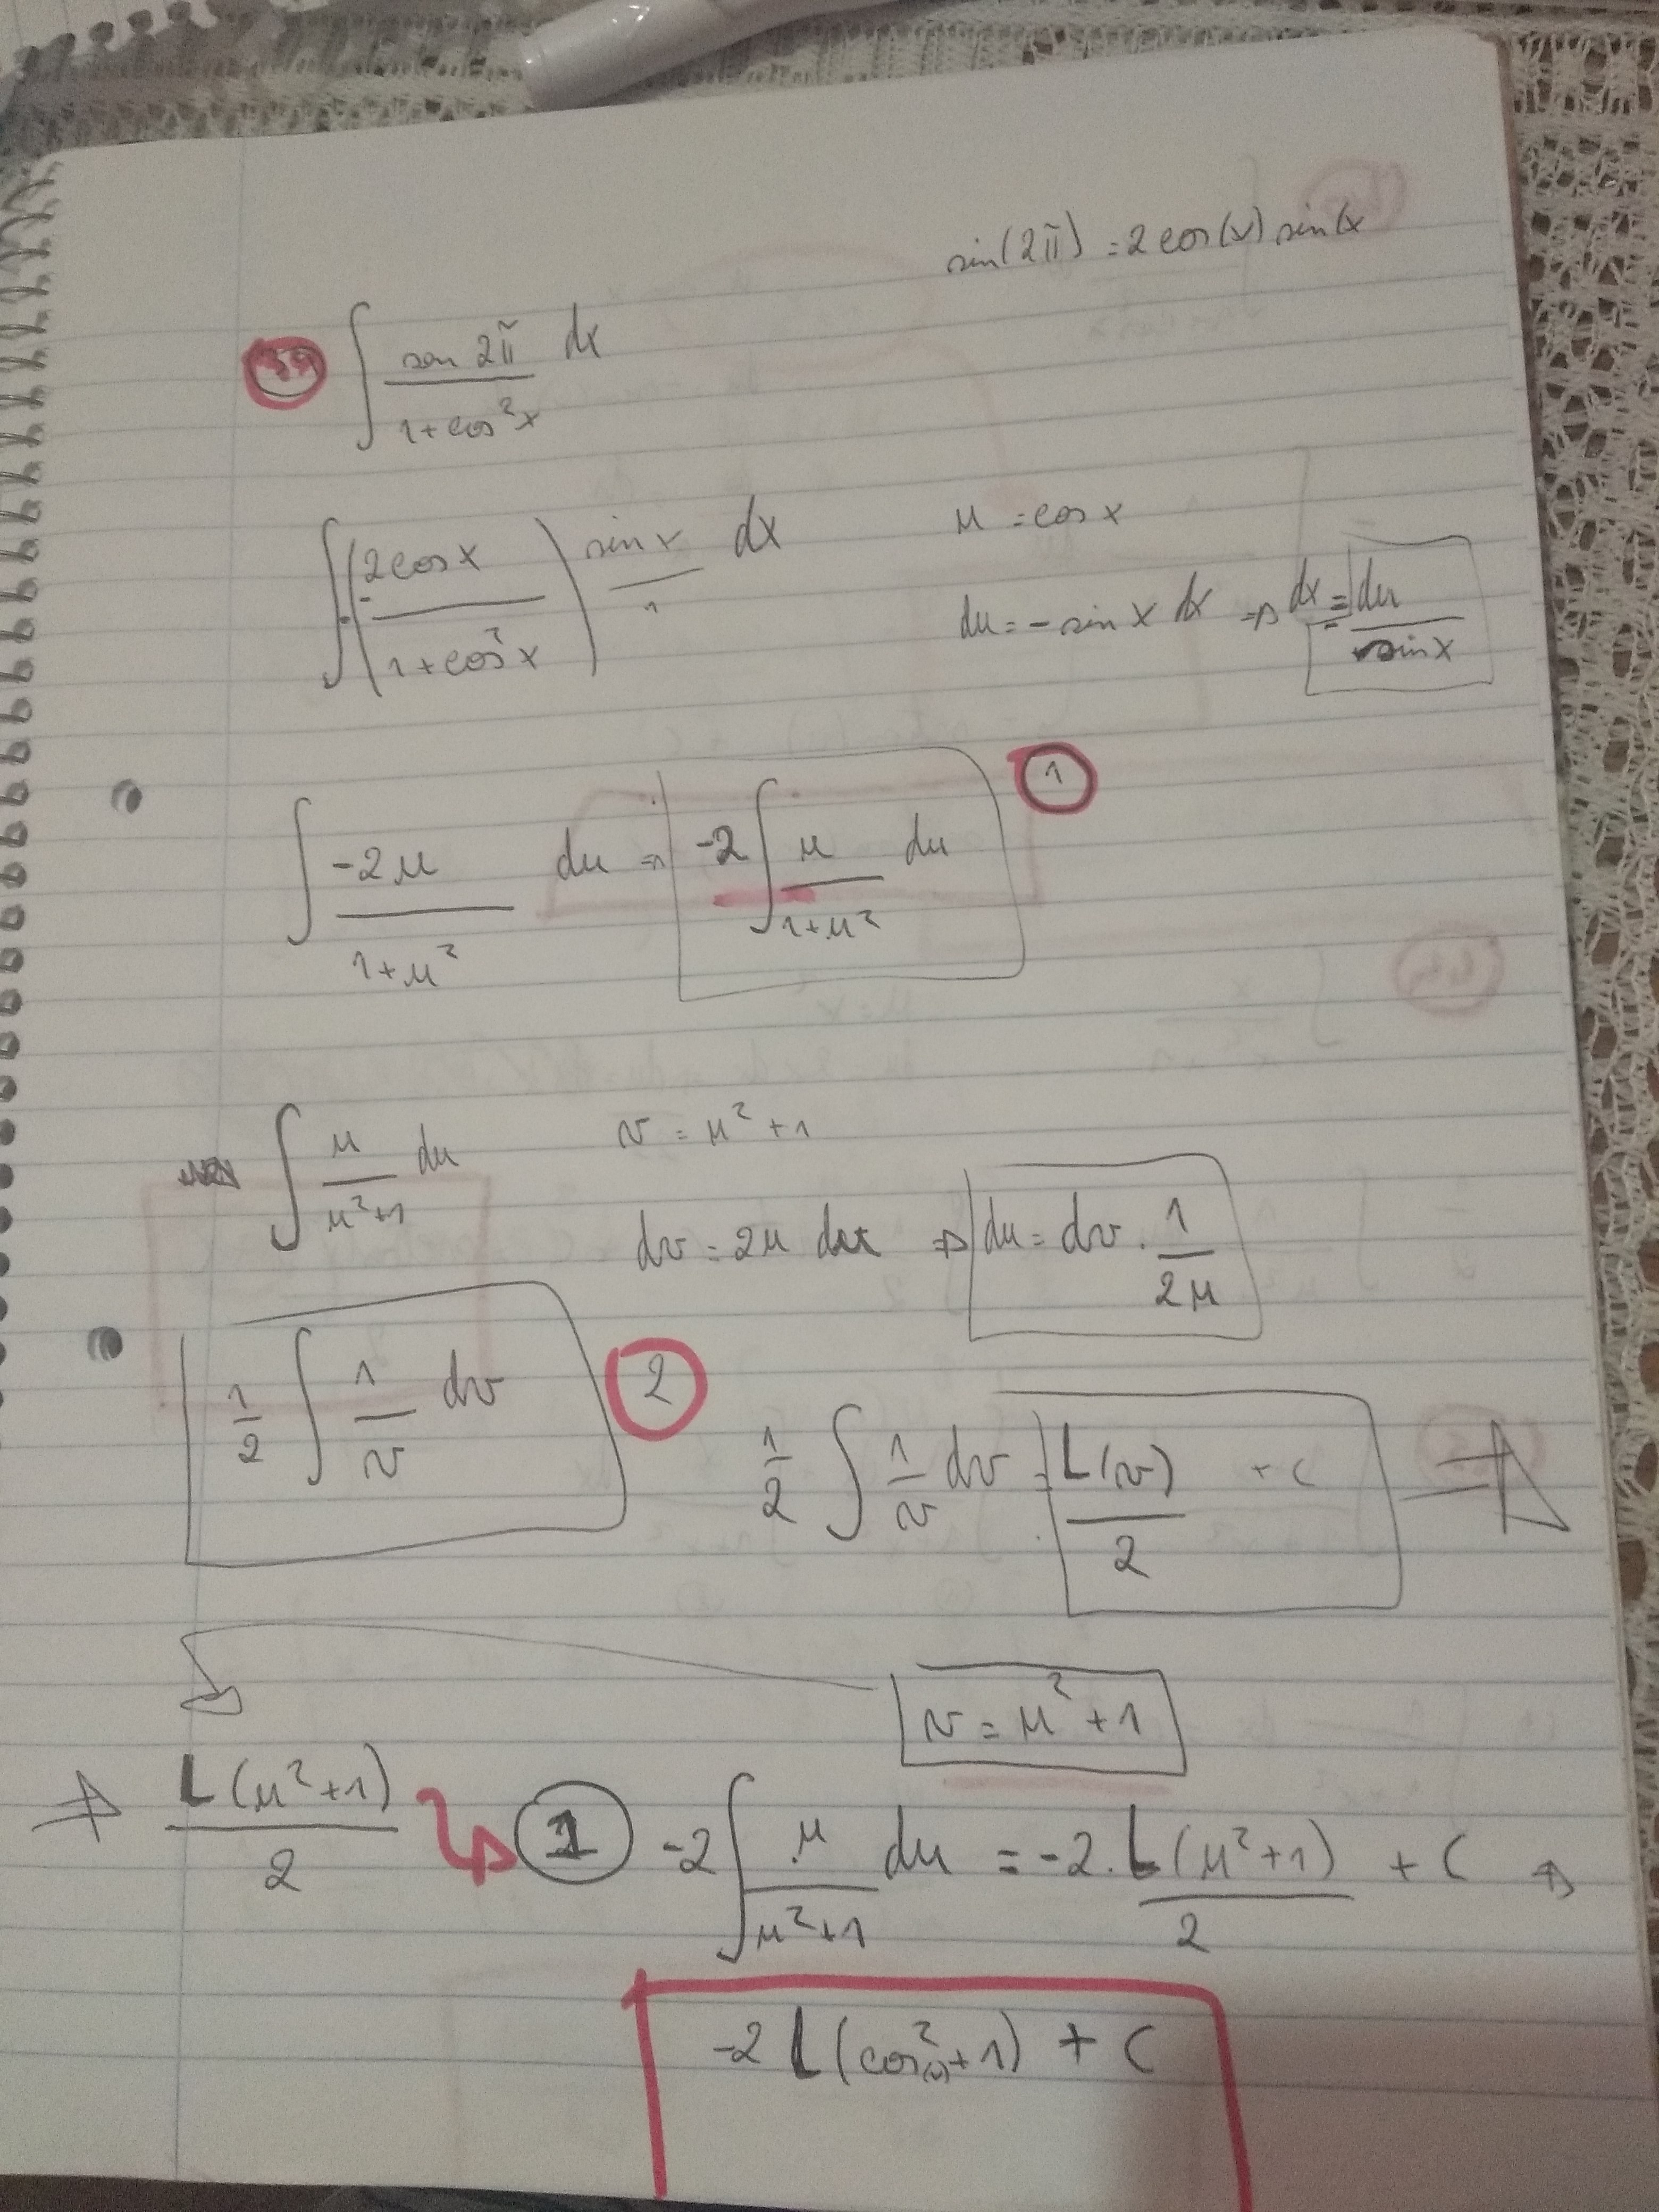 sin(2π) = 2 cos(x) sin(x
39 ∫ sen 2π / 1+cos²x dx
∫ (2cosx / 1+cos²x) sinx / 1 dx
u = cos x
du = - sin x dx ⇒ dx = - du / sinx
∫ -2u / 1+u² du ⇒ -2 ∫ u / 1+u² du 1
∫ u / u²+1 du
v = u² + 1
dv = 2u du ⇒ du = dv . 1 / 2u
1/2 ∫ 1/v dv 2
1/2 ∫ 1/v dv = L(v) / 2 + c ⇒
v = u² + 1
⇒ L(u²+1) / 2 ↳ 1 -2 ∫ u / u²+1 du = -2 . L(u²+1) / 2 + C ⇒
-2 L(cos²(x)+1) + C